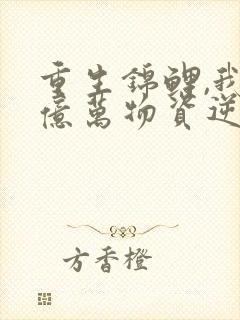 重生錦鯉,我
億萬物資逆
方香橙